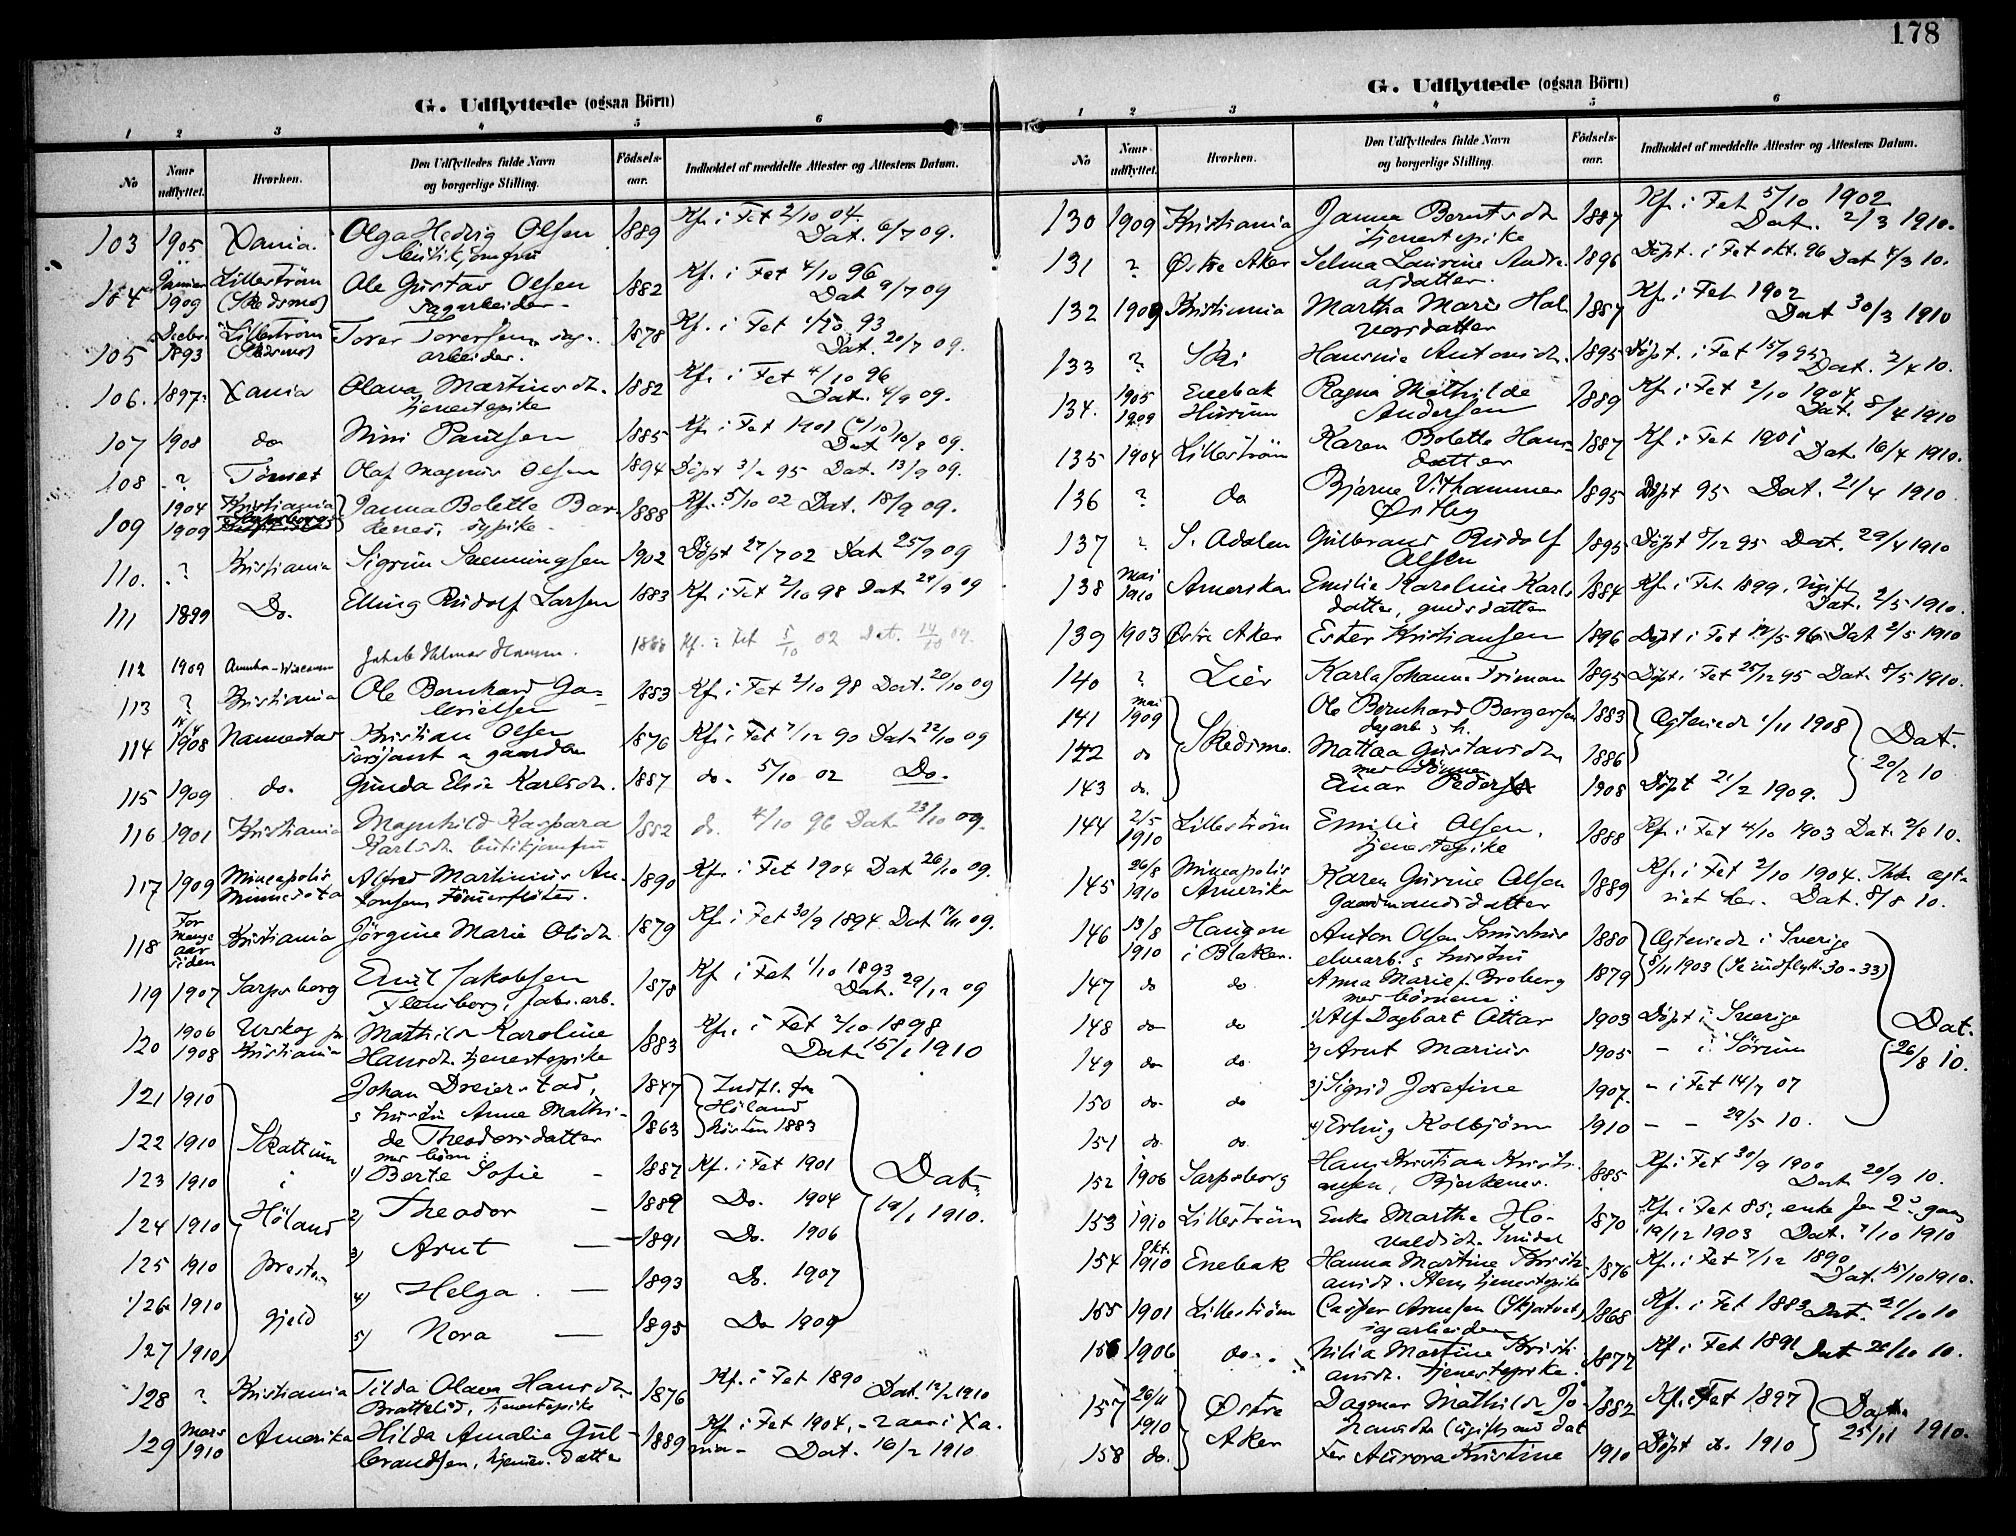 178
G. Udflyttede (ogsaa Börn)
1 2 3 4 5 6
No
Naar udflyttet.
Hvorhen.
Den Udflyttedes fulde Navn og borgerlige Stilling.
Födsels-aar.
Indholdet af meddelte Attester og Attestens Datum.
103 1905 Xania. Olga Hedvig Olsen 1889 Kf. i Fet 2/10 04.
butikjomfru Dat. 6/7 09.
104 1909 Lilleström Ole Gustav Olsen 1882 Kf. i Fet 4/10 96
(Skedsmo) sagarbeider Dat 9/7 09
105 Decbr. 1893 Lilleström Torer Torersen, sag- 1878 Kf. i Fet 1/10 93
(Skedsmo) arbeider. Dat. 20/7 09.
106. 1897 Xania Olava Martinsdtr. 1882 Kf. i Fet 4/10 96
tjenestepike Dat. 4/9 09.
107 1908 do Nini Paulsen 1885 Kf. i Fet 1901
Dat 10/9 09.
108 ? Olaf Magnus Olsen 1894 Döpt 3/2 95 Dat. 13/9 09.
109 1904 Kristiania Janna Bolette Bar- 1888 Kf. 5/10 02 Dat. 18/9 09.
1909 sypike
110. ? Kristiania Sigrun Svenningsen 1902 Döpt 27/7 02 Dat 25/9 09
111 1899 Do. Elling Rudolf Larsen 1883 Kf. i Fet 2/10 98 Dat 29/9 09
112 1909 Amerika-Wisconsin Jakob Hilmar Hansen. Kf. i Fet 5/10 02 Dat. 14/10 09.
113 ? Kristiania Ole Bernhard Ga- 1883 Kf. i Fet 2/10 98 Dat. 20/10 09
brielsen
114 14/4 1908 Nannestad Kristian Olsen 1876 Kf. i Fet 7/12 90 Dat 22/10 09
sersjant
115 1909 do. Gunda Elise Karlsdtr. 1887 do. 5/10 02 Do.
116 1901 Kristiania Magnhild Kaspara 1882 do. 4/10 96 Dat 23/10 09.
Karlsdtr butikjomfru
117 1909 Mineapolis Alfred Martinius An- 1890 Kf. i Fet 1904 Dat 26/10 09.
Minnesota tonsen, tömmerflöter.
118 For mange aar siden Kristiania Jörgine Marie Olsdtr. 1879 Kf. i Fet 30/9 1894 Dat 17/11 09.
119 1907 Sarpsborg Emil Jakobsen 1878 Kf i Fet 1/10 1893
Flensborg, fabr. arb. Dat. 29/12 09
120 1906 Urskog Mathilde Karoline 1883 Kf. i Fet 2/10 1898
1908 Kristiania Hansdtr. tjenestepike Dat 15/1 1910
121 1910 Johan Dreierstad, 1847 Indfl. fra
s hustru Anne Mathi- Höland
122 1910 Skattum de Theodorsdatter 1863 hösten 1883
med börn:
123 1910 i 1) Berte Sofie 1887 Kf. i Fet 1901 Dat.
124 1910 Höland 2) Theodor 1889 Do. 1904 19/1 1910.
125 1910 preste- 3) Arnt 1891 Do. 1906
126 1910 gjeld 4) Helga 1893 Do. 1907
127 1910 5) Nora 1895 Do 1909
128 ? Kristiania Tilda Olava Hansdtr 1876 Kf. i Fet 1890 Dat. 12/2 1910
Bratteli, tjenestepike
129 Mars 1910 Amerika Hilda Amalie Gul- 1889 Kf. i Fet 1904, - 2 aar i Xa-
brandsen, datter nia - Dat. 16/2 1910
G. Udflyttede (ogsaa Börn)
1 2 3 4 5 6
No
Naar udflyttet.
Hvorhen.
Den Udflyttedes fulde Navn og borgerlige Stilling.
Födsels-aar.
Indholdet af meddelte Attester og Attestens Datum.
130 1909 Kristiania Janna Berntsdtr 1887 Kf. i Fet 5/10 1902
tjenestepike Dat. 2/3 1910.
131 ? Østre Aker Selma Laurine Andre- 1896 Döpt. i Fet okt. 96 Dat 4/3 10.
asdatter.
132 1909 Kristiania Martha Marie Hal- 1887 Kf. i Fet 1902
vorsdatter Dat 30/3 1910
133 ? Ski Hansine Antonsdtr. 1895 Döpt. i Fet 15/9 95 Dat. 2/4 10.
134. 1905 Enebak Ragna Mathilde 1889 Kf. i Fet 2/10 1904
1909 Hurum Andersen Dat. 8/4 1910
135 1904 Lilleström Karen Bolette Hans- 1887 Kf. i Fet 1901 Dat 16/4 1910.
datter
136 ? do Bjarne Vithammer 1895 Döpt 95 Dat. 21/4 1910
Østby
137 ? S. Odalen Gulbrand Rudolf 1895 Döpt 8/12 95 Dat. 29/4 1910
Olsen
138 Mai 1910 Amerika Emilie Karoline Karls- 1884 Kf. i Fet 1899, ugift
datter, gmdsdatter Dat. 2/5 1910.
139 1903 Østre Aker Ester Kristiansen 1896 Döpt i Fet 96 Dat 2/5 1910
140 ? Lier Karla Johanne Friman 1895 Döpt i Fet 25/12 95 Dat. 8/5 1910.
141 mai 1909 Ole Bernhard Bergersen 1883 Ægteviedt 1/11 1908
142 do Skedsmo. Mattea Gustavsdtr 1886 Dat.
med sönnen 20/7 10
143 do. Einar Peder 1908 Döpt 21/2 1909.
144 2/5 1910 Lilleström Emilie Olsen, 1888 Kf. i Fet 4/10 1903 Dat. 2/8 10.
tjenestepike
145 26/8 1910 Mineapolis Karen Gurine Olsen 1889 Kf. i Fet 2/10 1904. Ikke ægte-
Amerika Gaardmandsdatter viet her. Dat. 8/8 10.
146 13/8 1910 Haugen Anton Olsen 1880 Ægteviedt i Sverige
i Blaker. s hustru 8/11 1903 (Se indflytt. 30-33)
147 do do Anna Marie f. Broberg 1879
med börnene:
148 do do 1) Alf Dagbart Ottar 1903 Döpt i Sverige Dat.
149 do do 2) Arnt Marius 1905 - i Sörum 26/8 10.
150 do. do 3) Sigrid Josefine 1907. - i Fet 14/7 07
151 do. do. 4) Erling Kolbjörn 1910 - - 29/5 10.
152 1906 Sarpsborg Hans Kristian Kristi- 1885 Kf. i Fet 30/9 1900
ansen, Bjerkenes. Dat 20/9 10.
153 1910 Lilleström Enke Marthe Ho- 1870 Kf. i Fet 85, enke for 2. gang
valdsdtr. 19/12 1903 Dat. 7/10 1910
154 Okt. 1910 Enebak Hanna Martine Kristi- 1876 Kf. i Fet 7/12 1890
ansdtr. tjenestepike Dat. 15/10 1910.
155 1901 Lilleström Casper Arnesen 1868 Kf. i Fet 1883 Dat. 21/10 10
sagarbeider
156 1906 do. Julia Martine Kristi- 1877 Kf i Fet 1891 Dat 26/10 10.
ansdtr. tjenestepike.
157 26/11 1910 Østre Dagmar Mathilde Jo- 1882 Kf. i Fet 1897 Dat.
hansdtr (ugift) med dat- 25/11 1910.
158 do. Aker ter Aurora Kristine 1910 Döpt do. 1910